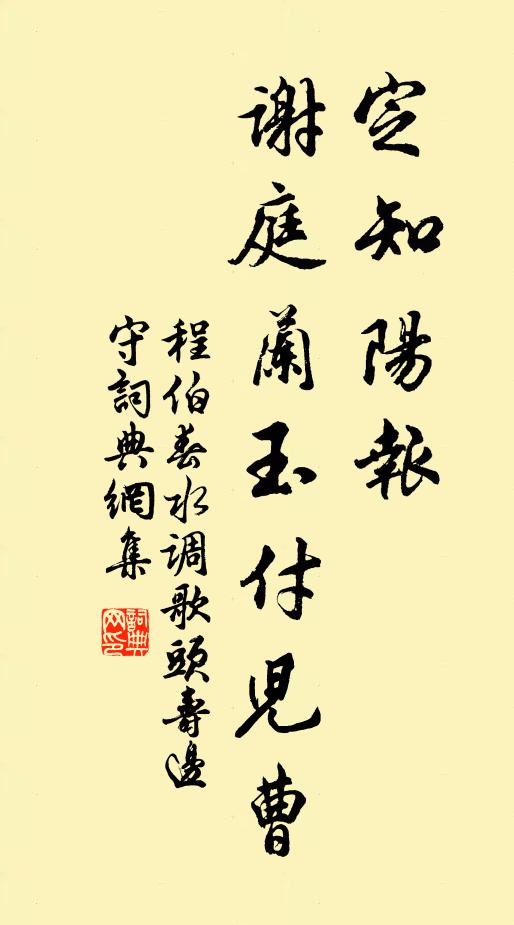 定知陽報
謝庭蘭玉付兒曹
程伯春水调歌頭壽邊
守詞典網集
詞典
网印